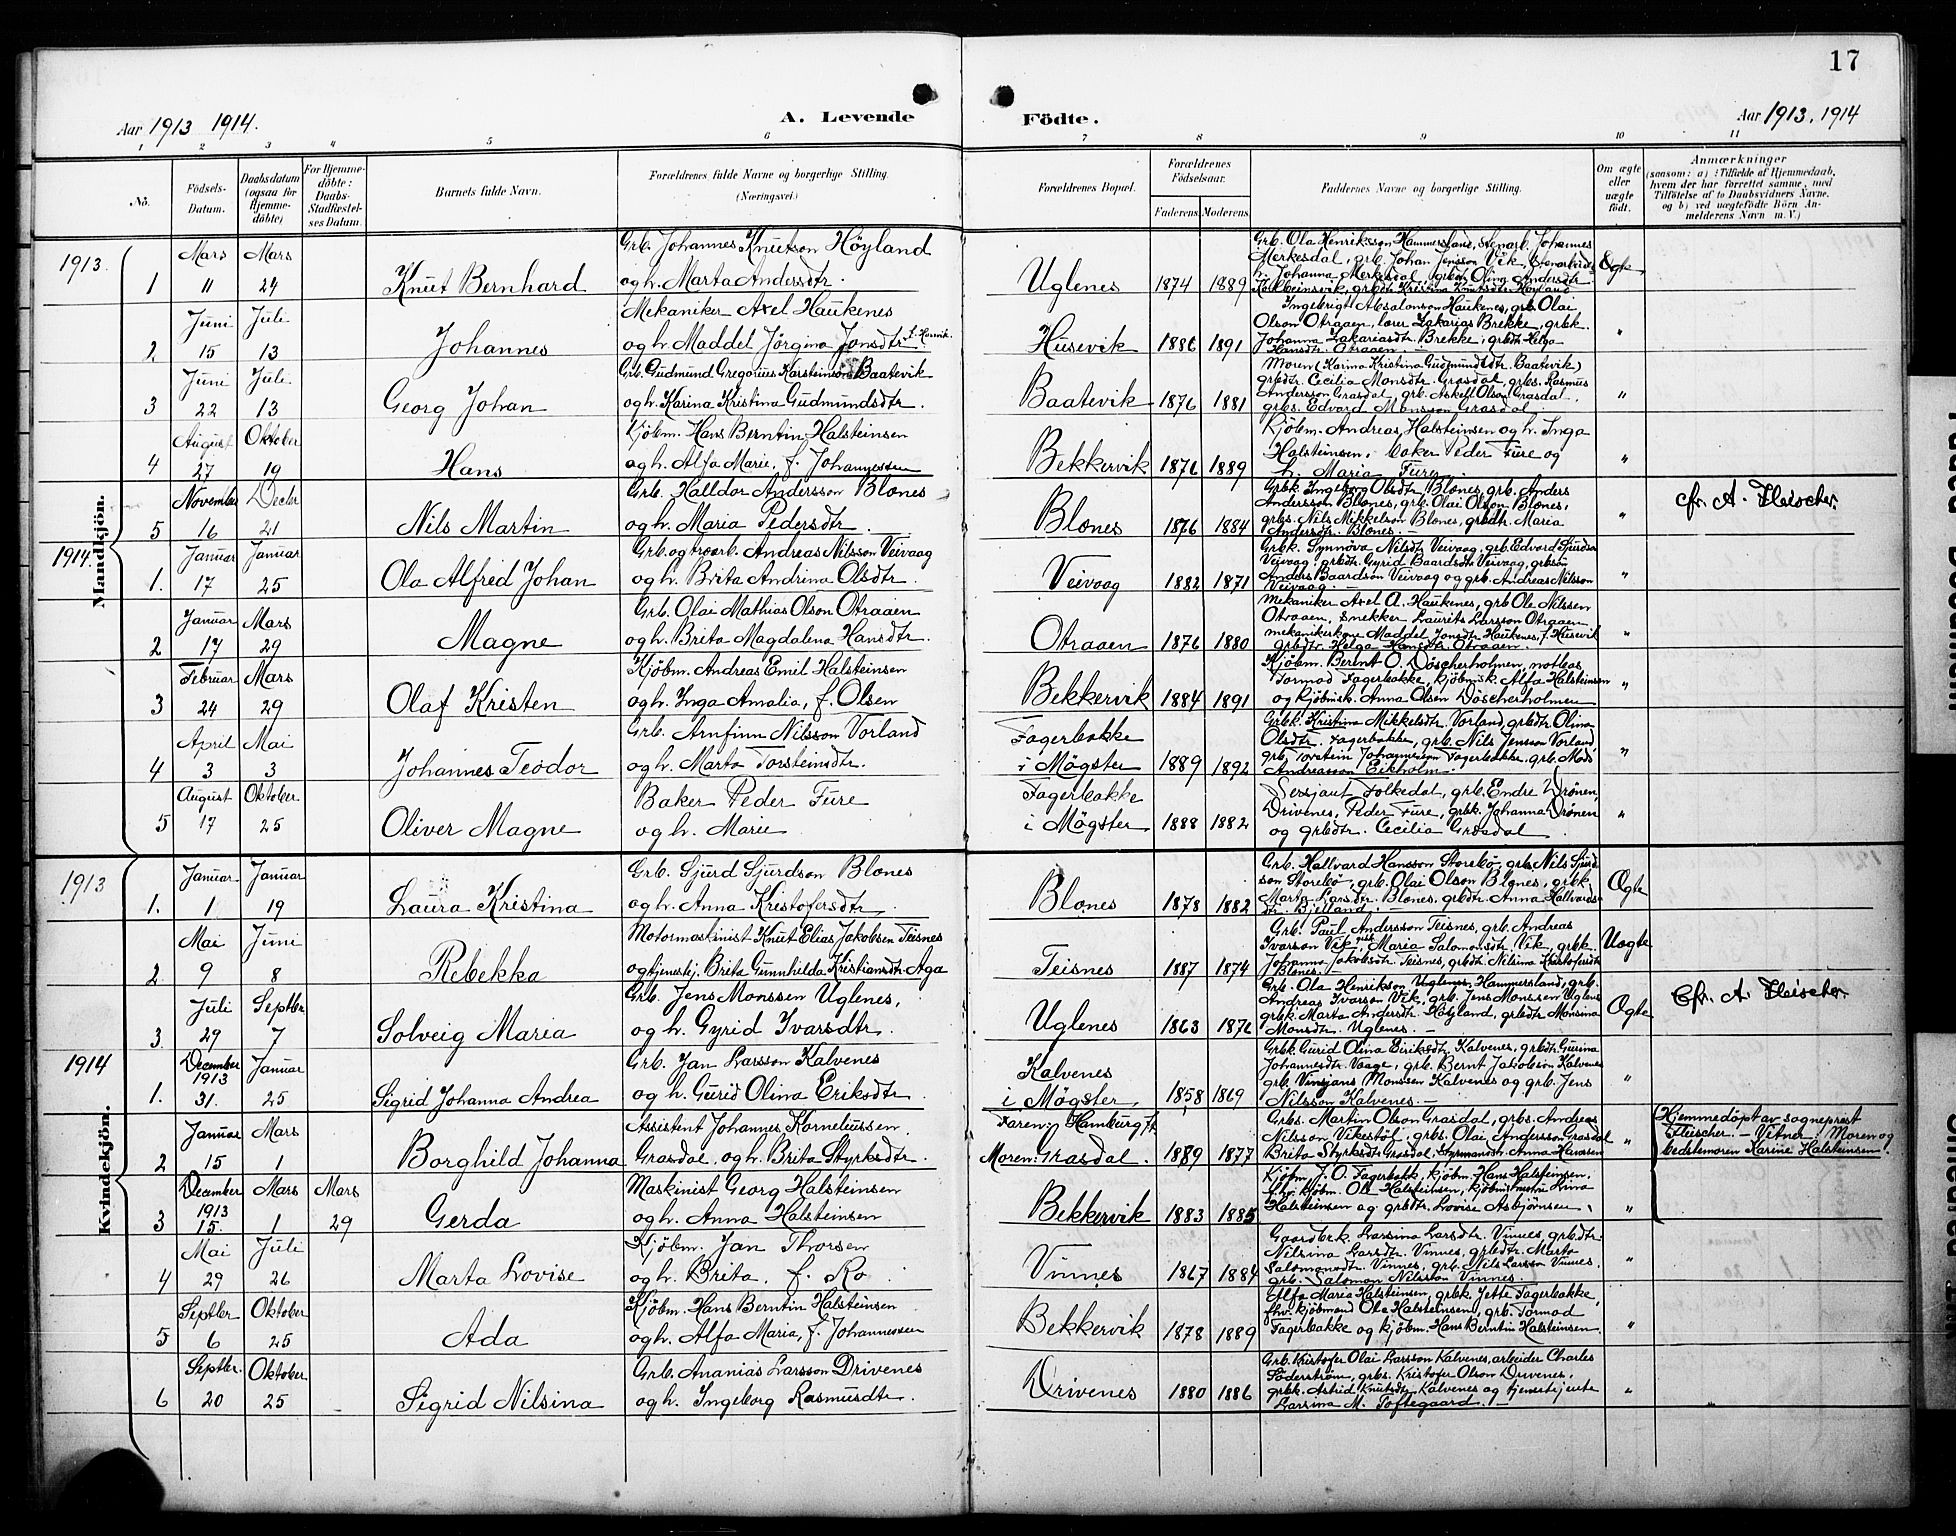 17
Aar 1913 1914.
A. Levende
Födte.
Aar 1913. 1914
1 2 3 4 5 6 7 8 9 10 11
No.
Födsels-Datum.
Daabsdatum (ogsaa for Hjemme-döbte)
For Hjemme-döbte: Daabs-Stadfæstel-ses Datum.
Barnets fulde Navn.
Forældrenes fulde Navne og borgerlige Stilling. (Næringsvei.)
Forældrenes Bopæl.
Forældrenes Födselsaar.
Faderens Moderens
Faddernes Navne og borgerlige Stilling.
Om ægte eller uægte födt.
Anmærkninger
(saasom: a) i Tilfælde af Hjemmedaab, hvem der har forrettet samme, med Tilföielse af to Daabsvidners Navne. og b) ved uægtefödte Börn An-melderens Navn m. V.)
Mandkjön.
1913.
1 Mars 11 Mars 24 Knut Bernhard
Grb. Johannes Knutson Höyland
og h. Marta Andersdtr.
Uglenes 1874 1889
Grb. Ola Henrikson Hammersland, stenarb. Johannes
Merkesdal, grb. Johan Jensson Vik, Stenarbeids
h. Johanna Merkesdal, grbdtr. Olina Andersdtr.
Kolbeinsvik, grbdtr. Kristina Knutsdtr. Höyland
Ægte
2 Juni 15 Juli 13 Johannes
Mekaniker Axel Haukenes
og h. Maddel Jörgina Jonsdtr. f. Husevik.
Husevik 1886 1891
Ingebrigt Absalonson Haukenes, grb. Olai
Olson Otraaen, lærer Zakarias Brekke, grbk.
Johanna Zakariasdtr. Brekke, grbdtr. Helga
Hansdtr. Otraaen —
"
3 Juni 22 Juli 13 Georg Johan
Grb. Gudmund Gregorius Karsteinson Baatevik
og h. Karina Kristina Gudmundsdtr.
Baatevik 1876 1881
Moren (Karina Kristina Gudmundsdtr. Baatevik)
grbdtr. Cecilia Monsdtr. Grasdal, grbs. Rasmus
Andersson Grasdal, grb. Askell Olson Grasdal,
grbs. Edvard Monsson Grasdal.
"
4 August 27 Oktober 19 Hans
Kjöbm. Hans Berntin Halsteinsen
og h. Alfa Marie, f. Johannessen
Bekkervik 1876 1889
Kjöbm. Andreas Halsteinsen og h. Inga
Halsteinsen, baker Peder Fure og
h. Maria Fure
"
5 November 16 Decbr 21 Nils Martin
Grb. Halldor Andersson Blænes
og h. Maria Pedersdtr.
Blænes 1876 1884
Grbk. Ingebor Olsdtr. Blænes, grb. Anders
Andersson Blænes, grb. Olai Olson Blænes,
grbs. Nils Mikkelson Blænes, grbdtr. Maria
Andersdtr. Blænes.
"
cfr. A. Fleischer.
1914.
1. Januar 17 Januar 25 Ola Alfred Johan
Grb. og træarb. Andreas Nilsson Veivaag
og h. Brita Andrina Olsdtr.
Veivaag 1882 1871
Grbk. Synnöva Nilsdtr. Veivaag, grb. Edvard Sjurdsen
Veivaag, grbdtr. Gyrid Baardsdtr. Veivaag, grbsön
Anders Baardson Veivaag og grb. Andreas Nilsson
Veivaag.
"
2 Januar 17 Mars 29 Magne
Grb. Olai Mathias Olson Otraaen
og h. Brita Magdalena Hansdtr.
Otraaen 1876 1880
Mekaniker Axel A. Haukenes, grb. Ole Nilssen
Otraaen, snekker Laurits Larsson Otraaen
mekanikerkone Maddel Jonsdtr. Haukenes, f. Husevik
grbdtr. Helga Hansdtr. Otraaen.
"
3 Februar 24 Mars 29 Olaf Kristen
Kjöbm. Andreas Emil Halsteinsen
og h. Inga Amalia, f. Olsen
Bekkervik 1884 1891
Kjöbm. Bernt O. Döscherholmen, notbas
Tormod Fagerbakke, kjöbmsk. Alfa Halsteinsen
og kjöbmsk. Anna Olsen Döscherholmen
"
4 April 3 Mai 3 Johannes Teodor
Grb. Arnfinn Nilsson Vorland
og h. Marta Torsteinsdtr.
Fagerbakke
i Mögster 1889 1892
Grbk. Kristina Mikkelsdtr. Vorland, grbdtr. Olina
Olsdtr. Fagerbakke, grb. Nils Jensson Vorland
grb. Torstein Johannesson Fagerbakke, grb. Mads
Andreasson Eikholm.
"
5 August 17 Oktober 25 Oliver Magne
Baker Peder Fure
og h. Marie
Fagerbakke
i Mögster 1888 1882
Sersjant Folkedal, grb. Endre Drönen,
Drivenes, Peder Fure, grbk. Johanna Drönen
og grbdtr. Cecilia Grasdal
"
Kvindekjön.
1913
1. Januar 1 Januar 19 Laura Kristina
Grb. Sjurd Sjurdson Blænes
og h. Anna Kristofersdtr
Blænes 1878 1882
Grb. Hallvard Hansson Storebö, grbs. Nils Sjurd
son Storebö, grb. Olai Olson Blænes, grbk.
Marta Larsdtr. Blænes, grbdtr. Anna Hallvards
dtr. Bjelland.
Ægte
2. Mai 9 Juni 8 Rebekka
Motormaskinist Knut Elias Jakobsen Teisnes
og tjenestej. Brita Gunnhilda Kristiansdtr. Aga
Teisnes 1887 1874
Grb. Paul Andersson Teisnes, grb. Andreas
Ivarsson Vik, Maria Salomonsdtr. Vik, grbk.
Johanna Jakobsdtr. Teisnes, grbdtr. Nilsina Kristofersdtr
Blænes. —
Uægte
3. Juli 29 Septbr 7 Solveig Maria
Grb. Jens Monssen Uglenes,
og h. Gyrid Ivarsdtr.
Uglenes 1863 1876
Grb. Ola Henrikson Hammersland, grb.
Andreas Ivarson Vik, grb. Jens Monssen Uglenes
grbk. Marta Andersdtr. Höyland, grbdtr. Monsina
Monsdtr. Uglenes. —
Ægte
Cfr. A. Fleischer.
1914
1. December 1913 31. Januar 25 Sigrid Johanna Andrea
Grb. Jan Larsson Kalvenes
og h. Gurid Olina Eriksdtr.
Kalvenes
i Mögster. 1858 1869
Grbk. Gurid Olina Eiriksdtr. Kalvenes, grbdtr. Gurina
Johannesdtr. Vaage, grb. Bernt Jakobson Kalvenes
grb. Vinsjans Monssen Kalvenes og grb. Jens
Nilsson Kalvenes. —
"
2 Januar 15 Mars 1 Borghild Johanna
Assistent Johannes Korneliussen
Grasdal, og h. Brita Styrksdtr.
Faren: Hamburg
Moren: Grasdal. 1889 1877
Grbs. Martin Olson Grasdal, grbs. Andreas
Nilsson Vikestöl, grbs. Olai Andersson Grasdal
Brita Styrksdtr Grasdal, Styrmandsk. Anna Hanssen
"
Hjemmedöpt av sogneprest
Fleischer. — Vitner: Moren og
bedstemoren Karine Halsteinsen.
3 December 1913 15. Mars 1 Mars 29 Gerda
Maskinist Georg Halsteinsen
og h. Anna Halsteinsen
Bekkervik 1883 1885
Kjöbm. J. O. Fagerbakk, kjöbm. Hans Halsteinsen,
fhv. kjöbm. Ole Halsteinsen, kjöbm
Halsteinsen og grbdtr. Lovise Asbjörnsen.
"
4 Mai 29 Juli 26 Marta Lovise
Kjöbm. Jan Thorsen
og h. Brita, f. Ro
Vinnes 1867 1884
Gaardbrk. Larsina Larsdtr. Vinnes, grbdtr.
Nilsina Larsdtr. Vinnes, grbdtr. Marta
Salomonsdtr. Vinnes, grb. Nils Larsson Vinnes,
grb. Salomon Nilsson Vinnes.
"
5 Septbr 6 Oktober 25 Ada
Kjöbm. Hans Berntin Halsteinsen
og h. Alfa Maria, f. Johannessen
Bekkervik 1878 1889
Alfa Maria Halsteinsen, grbk. Jette Fagerbakke,
fhv. kjöbmand Ole Halsteinsen, grb. Tormod
Fagerbakke og kjöbm. Hans Berntin Halsteinsen.
"
6 Septbr. 20 Oktober 25 Sigrid Nilsina
Grb. Ananias Larsson Drivenes
og h. Ingeborg Rasmusdtr.
Drivenes 1880 1886
Grb. Kristofer Olai Larsson Kalvenes, arbeider Charles
Söderström, grbs. Kristofer Olson Drivenes,
grbk. Astrid Knutsdtr. Kalvenes og tjenestejente
Larsina M. Toftegaard. —
"